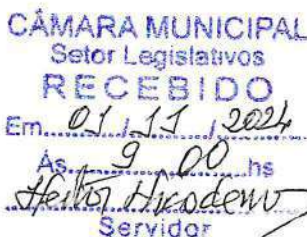 CÂMARA MUNICIPAL
Setor Legislativos
RECEBIDO
Em 01 / 11 / 2024
Às 9 00 hs
Heitor Nicodemo
Servidor